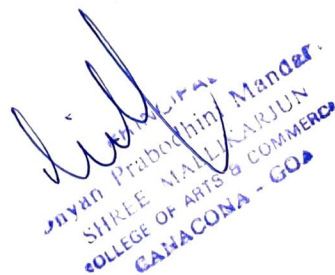 Prabodhini Mandal
SHREE MALLIKARJUN
COLLEGE OF ARTS & COMMERCE
CANACONA - GOA